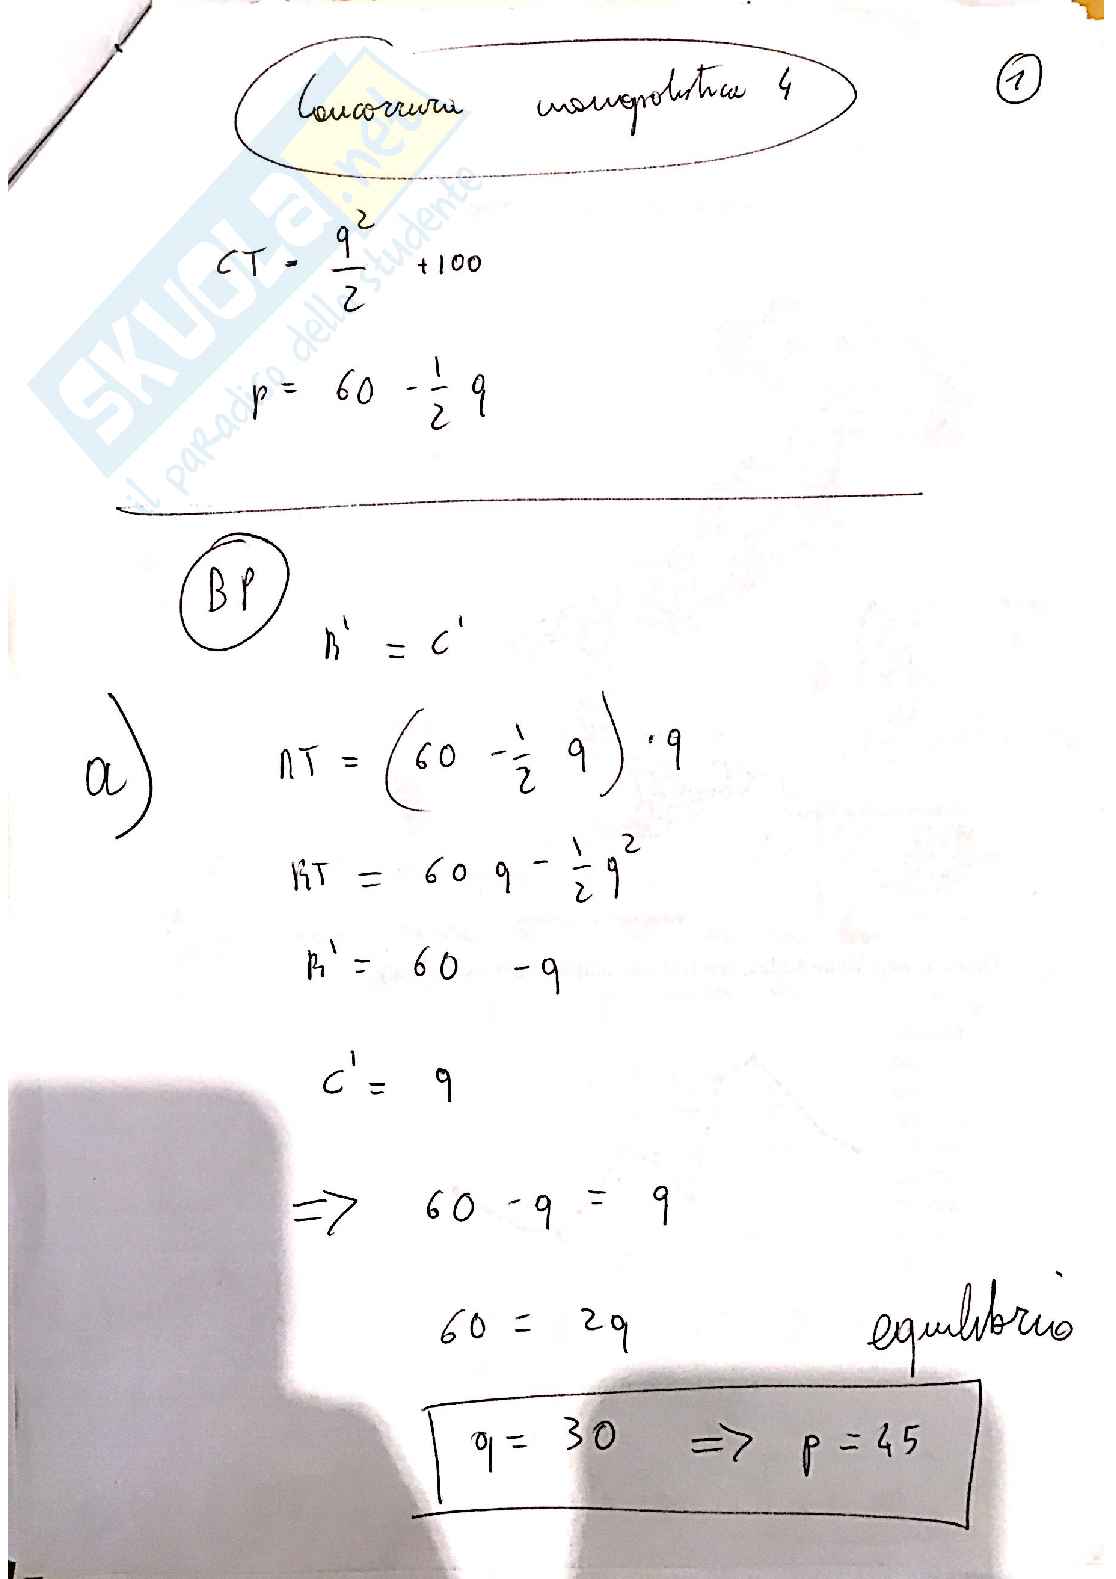 Concorrenza monopolistica 4
1
SKUOLA.net
il paradiso dello studente
CT = q²/2 + 100
p = 60 - 1/2 q
BP
R' = C'
a)
RT = (60 - 1/2 q) · q
RT = 60 q - 1/2 q²
R' = 60 - q
C' = q
=> 60 - q = q
60 = 2q
equilibrio
q = 30 => p = 45